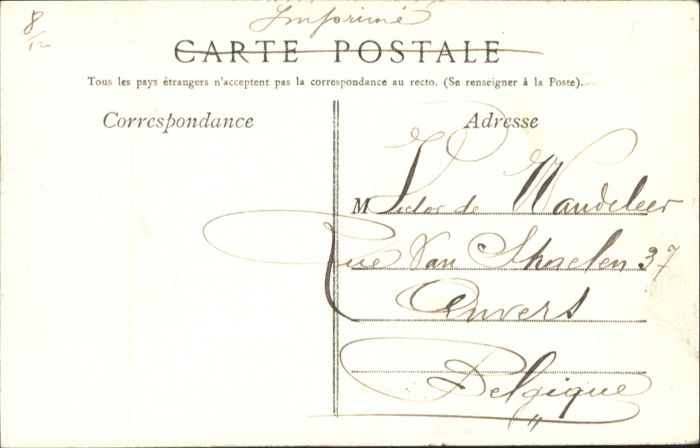 8/12
Imprimé
CARTE POSTALE
Tous les pays étrangers n'acceptent pas la correspondance au recto. (Se renseigner à la Poste).
Correspondance
Adresse
M Victor de Wandeleer
Rue Van 37
Anvers
Belgique